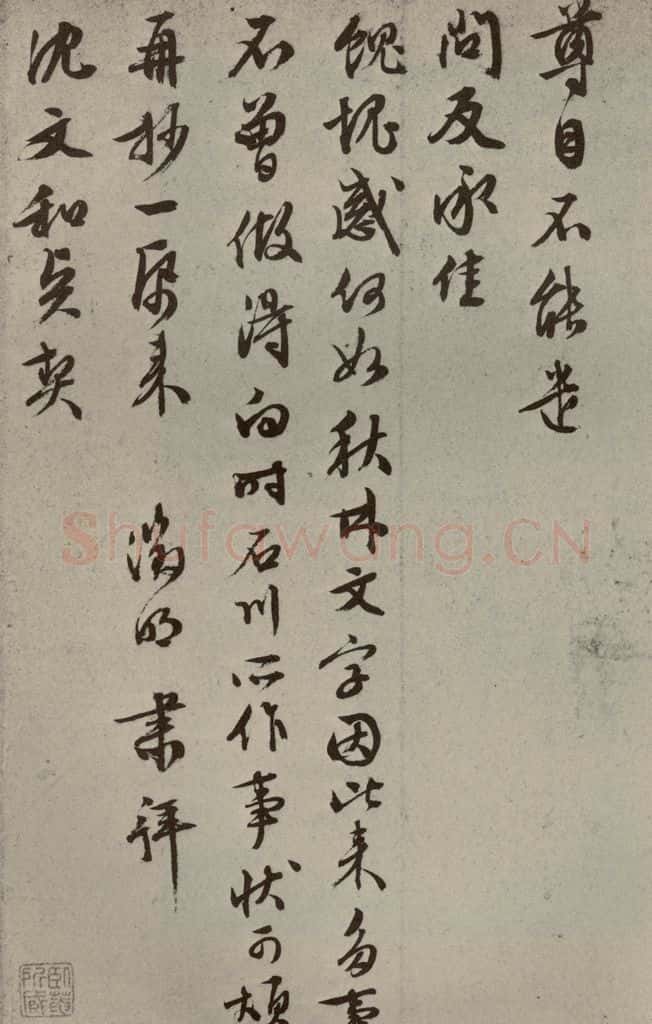 尊目不能遣
問反承佳
餽愧感何如秋林文字因此来多事
不曾做得向时石川所作事状可煩
再抄一本来 徵明 業拜
沈文和贞契
Shufawang.CN